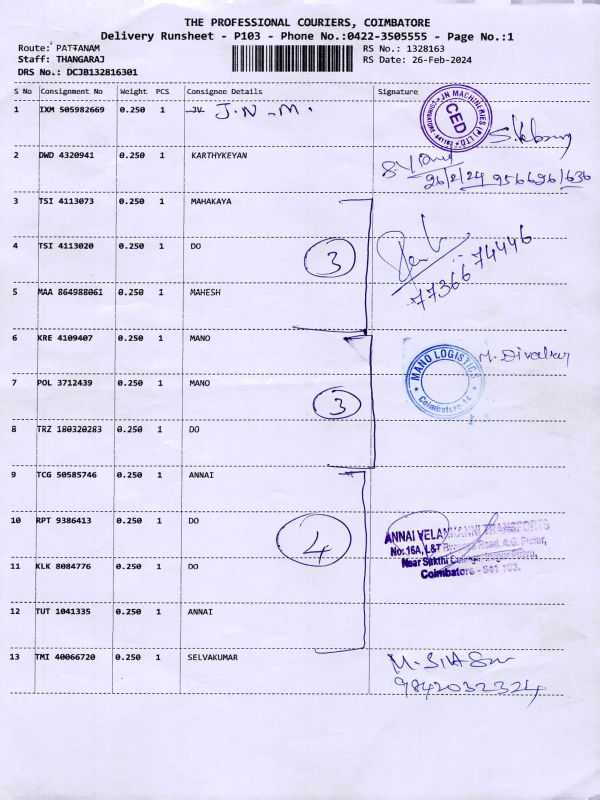 THE PROFESSIONAL COURIERS, COIMBATORE
Delivery Runsheet - P103 - Phone No.:0422-3505555 - Page No.:1
Route: PATTANAM RS No.: 1328163
Staff: THANGARAJ RS Date: 26-Feb-2024
DRS No.: DCJB132816301
S No Consignment No Weight PCS Consignee Details Signature
1 IXM 505982669 0.250 1 JV J.N.M.
JN MACHINERIES (P) LTD
CED
2 DWD 4320941 0.250 1 KARTHYKEYAN
26/2/24 956696/636
3 TSI 4113073 0.250 1 MAHAKAYA
4 TSI 4113020 0.250 1 DO 3
77366 74446
5 MAA 864988061 0.250 1 MAHESH
6 KRE 4109407 0.250 1 MANO
MANO LOGISTICS M. Divakar
7 POL 3712439 0.250 1 MANO 3
Coimbatore
8 TRZ 180320283 0.250 1 DO
9 TCG 50585746 0.250 1 ANNAI
10 RPT 9386413 0.250 1 DO 4
ANNAI VELANKANNI TRANSPORTS
No: 16A, L&T Road, A.G. Pudur,
Near Sakthi
Coimbatore - 641 103.
11 KLK 8084776 0.250 1 DO
12 TUT 1041335 0.250 1 ANNAI
13 TMI 40066720 0.250 1 SELVAKUMAR
9842032324